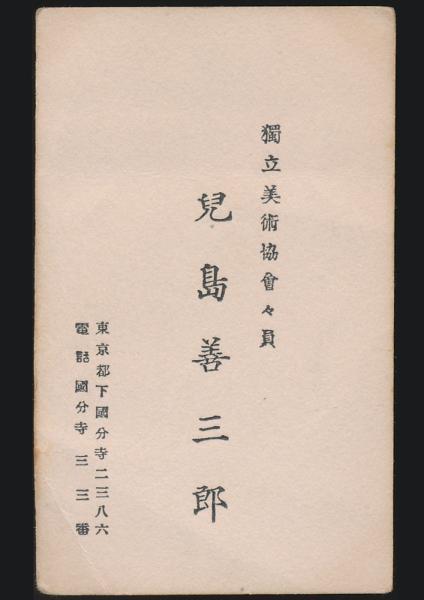 獨立美術協會々員
兒島善三郎
東京都下國分寺二三八六
電話國分寺三三番